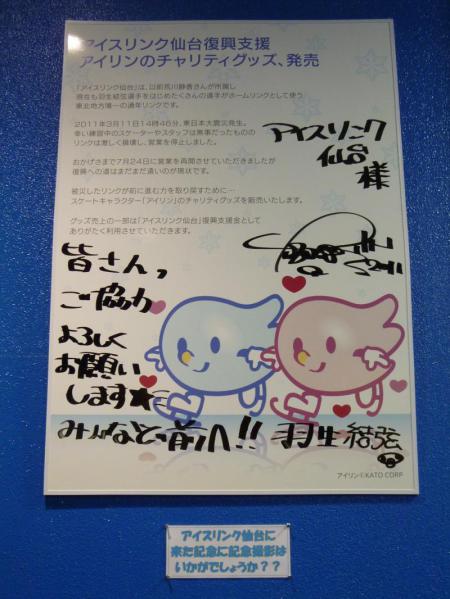 アイスリンク仙台復興支援
アイリンのチャリティグッズ、発売
「アイスリンク仙台」は、以前荒川静香さんが所属し
現在も羽生結弦選手をはじめたくさんの選手がホームリンクとして使う
東北地方唯一の通年リンクです。
2011年3月11日14時46分、東日本大震災発生。
幸い練習中のスケーターやスタッフは無事だったものの
リンクは激しく損壊し、営業を停止しました。
おかげさまで7月24日に営業を再開させていただきましたが
復興への道はまだまだ遠いのが現状です。
被災したリンクが前に進む力を取り戻すために…
スケートキャラクター「アイリン」のチャリティグッズを販売いたします。
グッズ売上の一部は「アイスリンク仙台」復興支援金として
ありがたく利用させていただきます。
アイスリンク
仙台
様
皆さんっ
ご協力
よろしく
お願い
します
みんなと、前へ!! 羽生結弦
アイリン©KATO CORP
アイスリンク仙台に
来た記念に記念撮影は
いかがでしょうか??